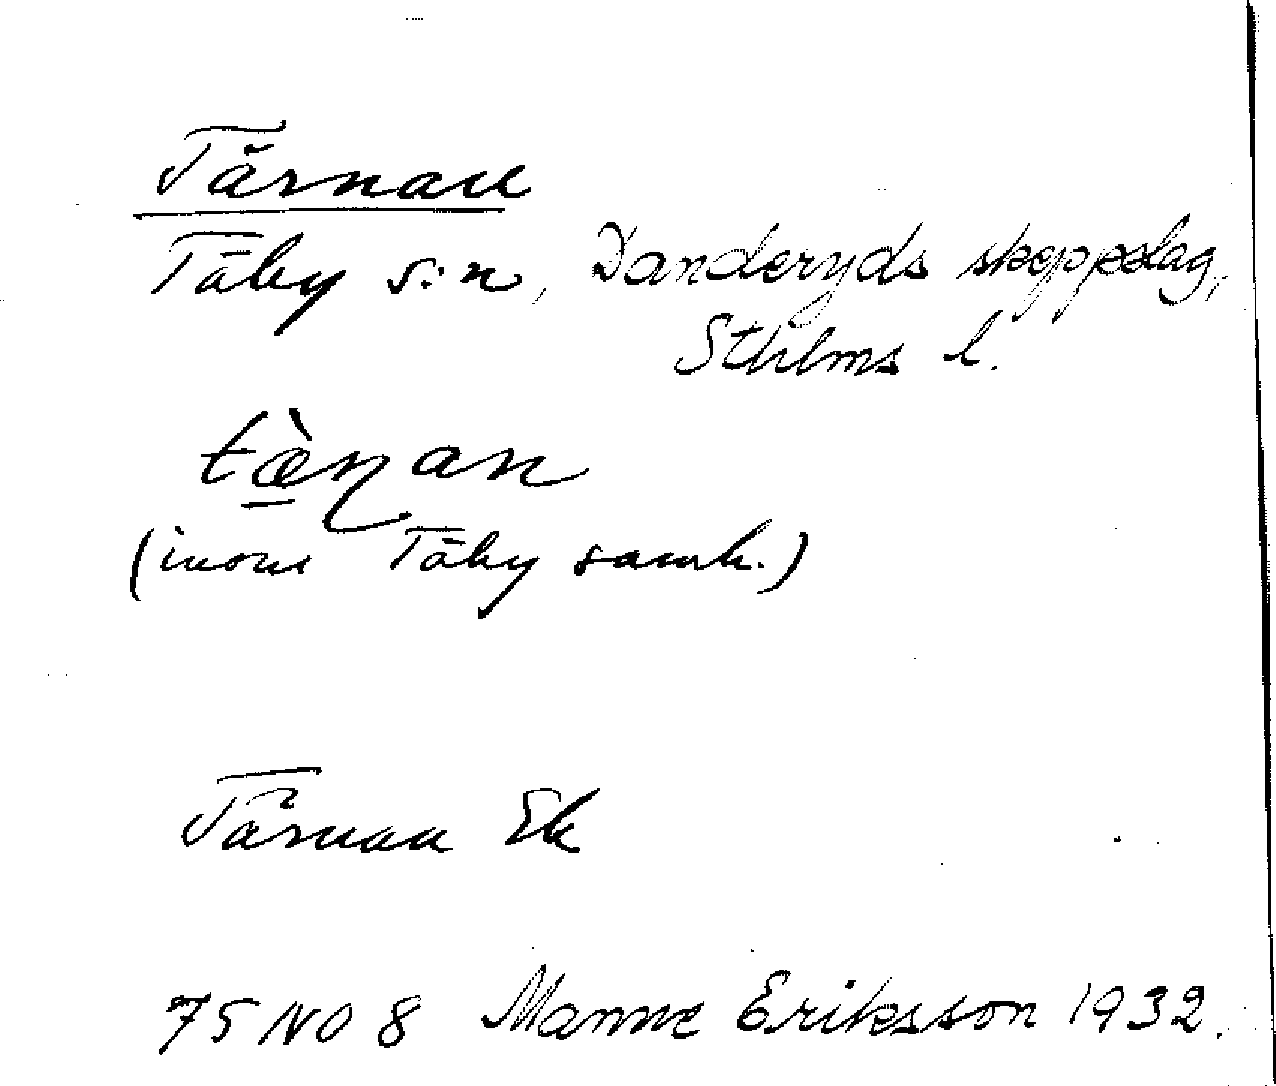 Tärnan
Täby s:n, Danderyds skeppslag,
Sthlms l.
tæ̀ɳan
(inom Täby samh.)
Tärnan Ek
75 NO 8 Manne Eriksson 1932.